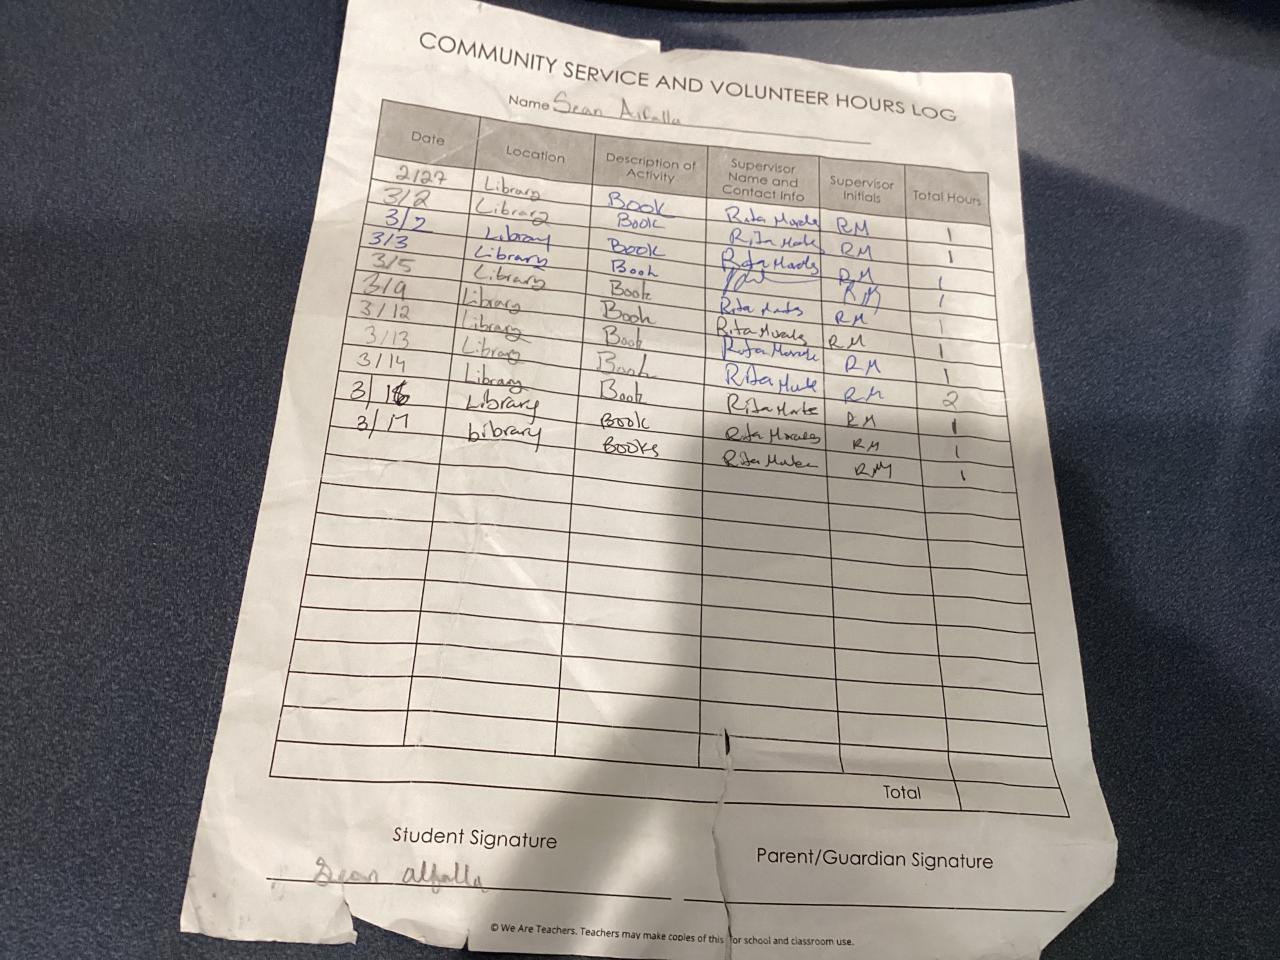 COMMUNITY SERVICE AND VOLUNTEER HOURS LOG
Name Sean Alfalla
Date Location Description of Activity Supervisor Name and Contact Info Supervisor Initials Total Hours
2/27 Library Book Rita Morales RM 1
3/2 Library Book Rita RM 1
3/2 Library Book Rita Morales RM 1
3/3 Library Book RM 1
3/5 Library Book Rita RM 1
3/9 Library Book Rita Morales RM 1
3/12 Library Book Rita Morales RM 1
3/13 Library Book Rita RM 2
3/14 Library Book Rita RM 1
3/16 Library Book Rita Morales RM 1
3/17 Library Books Rita RM 1
Total
Student Signature
Sean alfalla
Parent/Guardian Signature
© We Are Teachers. Teachers may make copies of this for school and classroom use.